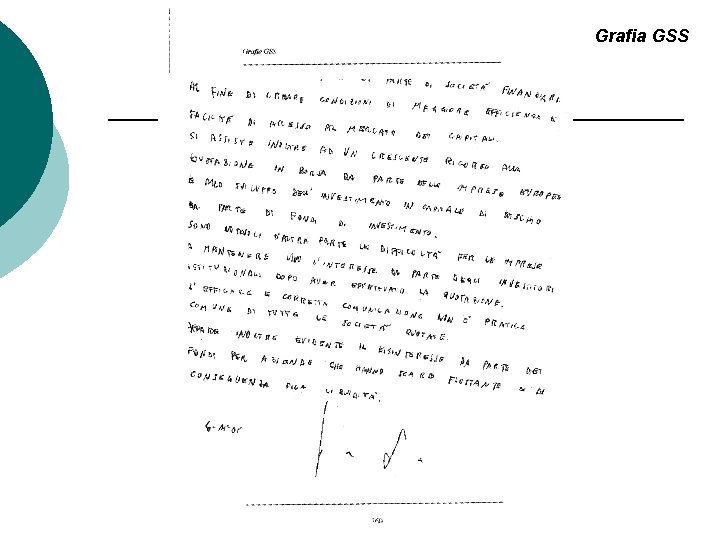 Grafia GSS
Grafia GSS
DI PARTE DI SOCIETA' FINANZIARI,
AL FINE DI CREARE CONDIZIONI DI MAGGIORE EFFICIENZA E
FACILITÀ DI ACCESSO AL MERCATO DEI CAPITALI.
SI ASSISTE INOLTRE AD UN CRESCENTE RICORSO ALLA
QUOTAZIONE IN BORSA DA PARTE DELLE IMPRESE EUROPEE
E ALLO SVILUPPO DELL' INVESTIMENTO IN CAPITALE DI RISCHIO
DA PARTE DI FONDI DI INVESTIMENTO.
SONO D'ALTRA PARTE LE DIFFICOLTÀ PER LE IMPRESE
A MANTENERE VIVO L'INTERESSE DA PARTE DEGLI INVESTITORI
ISTITUZIONALI DOPO AVER EFFETTUATO LA QUOTAZIONE.
L'EFFICACE E CORRETTA COMUNICAZIONE NON E' PRATICA
COMUNE DI TUTTE LE SOCIETA' QUOTATE.
APPARE INOLTRE EVIDENTE IL DISINTERESSE DA PARTE DEI
FONDI PER AZIENDE CHE HANNO SCARSO FLOTTANTE E DI
CONSEGUENZA POCA LIQUIDITA'.